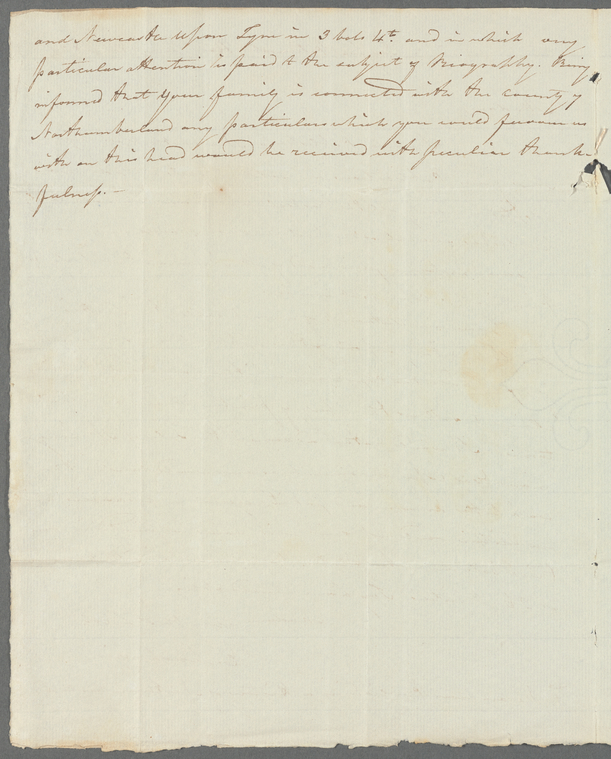 and Newcastle Upon Tyne in 3 vols 4to. and in which any
particular attention is paid to the subject of Biography. Being
informed that your family is connected with the county of
Northumberland any particulars which you could favour us
with on this head would be received with peculiar thank-
fulness. —